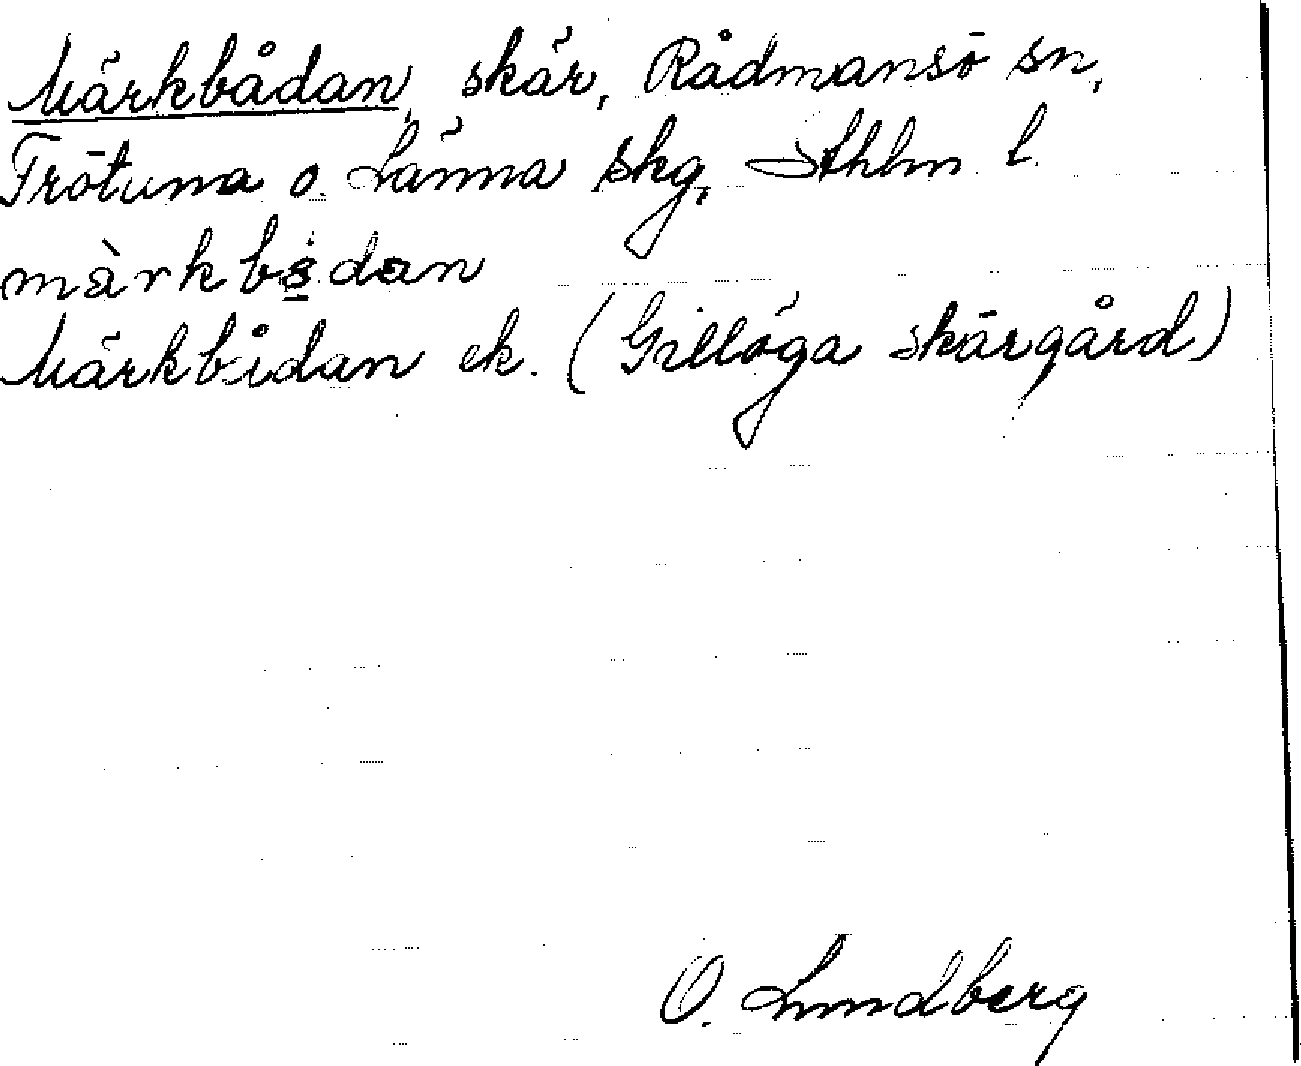 Märkbådan, skär, Rådmansö sn,
Frötuna o. Länna skg, Sthlm l.
màrkbådan
Märkbådan ek. (Gillöga skärgård)
O. Lundberg